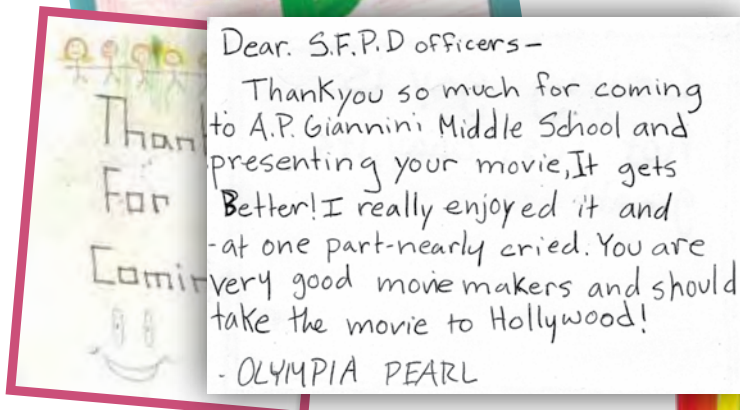 Than
For
Comin
Dear. S.F.P.D officers-
Thankyou so much for coming
to A.P. Giannini Middle School and
presenting your movie, It gets
Better! I really enjoyed it and
-at one part-nearly cried. You are
very good movie makers and should
take the movie to Hollywood!
- OLYMPIA PEARL